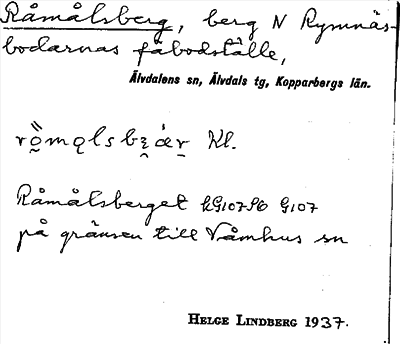 Råmålsberg, berg N Rymnäs-
bodarnas fäbodställe,
Älvdalens sn, Älvdals tg, Kopparbergs län.
Kl.
Råmålsberget
på gränsen till Våmhus sn
HELGE LINDBERG 1937.